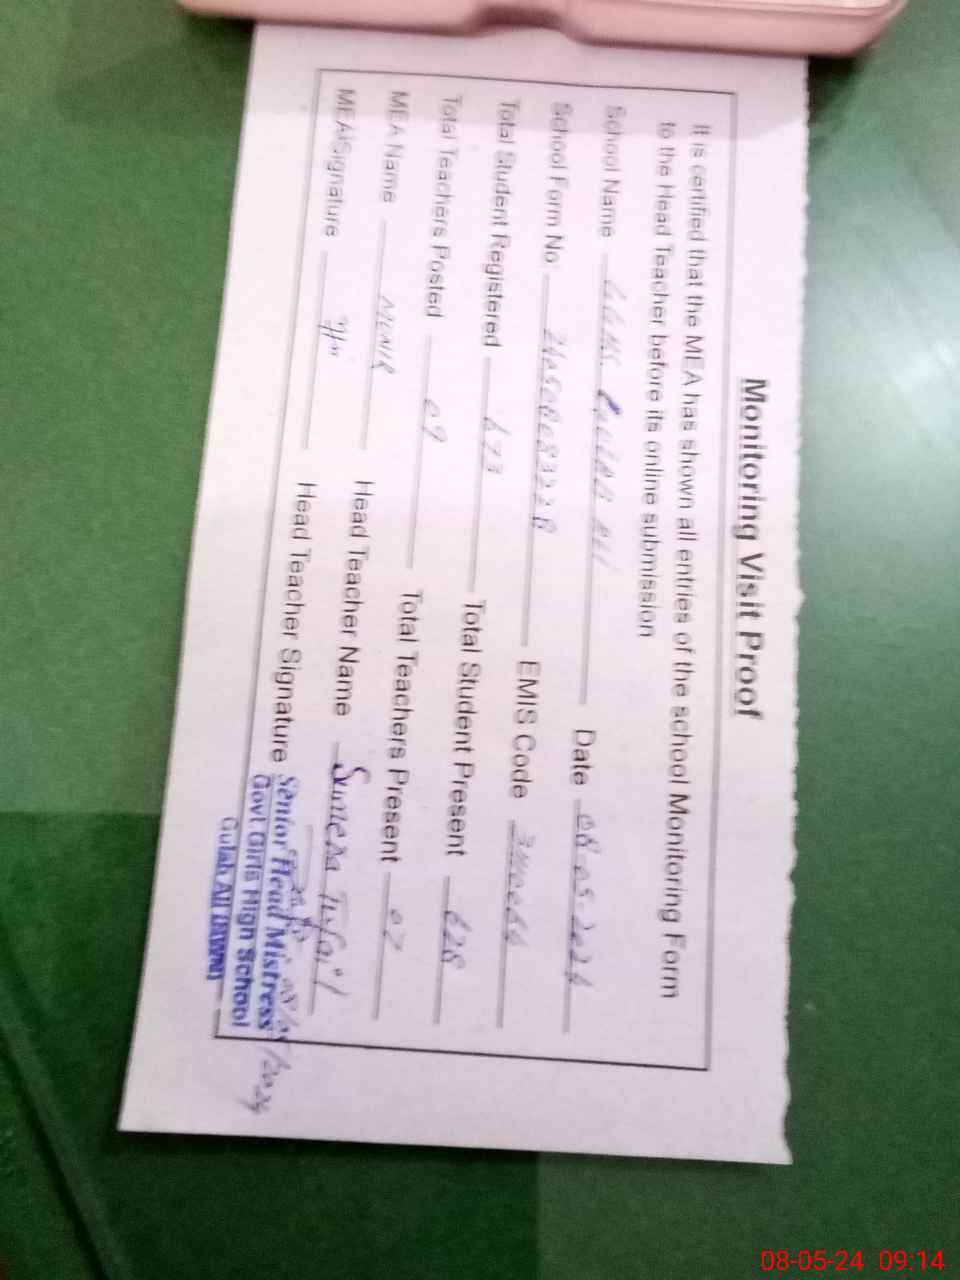 Monitoring Visit Proof
It is certified that the MEA has shown all entries of the school Monitoring Form
to the Head Teacher before its online submission
School Name GGHS GULAB ALI Date 08-05-2024
School Form No: EMIS Code
Total Student Registered 673 Total Student Present 628
Total Teachers Posted 09 Total Teachers Present 07
MEA Name MUNIR Head Teacher Name Sumera Tufail
MEA Signature Head Teacher Signature
08/05/2024
Senior Head Mistress
Govt Girls High School
Gulab Ali
08-05-24 09:14